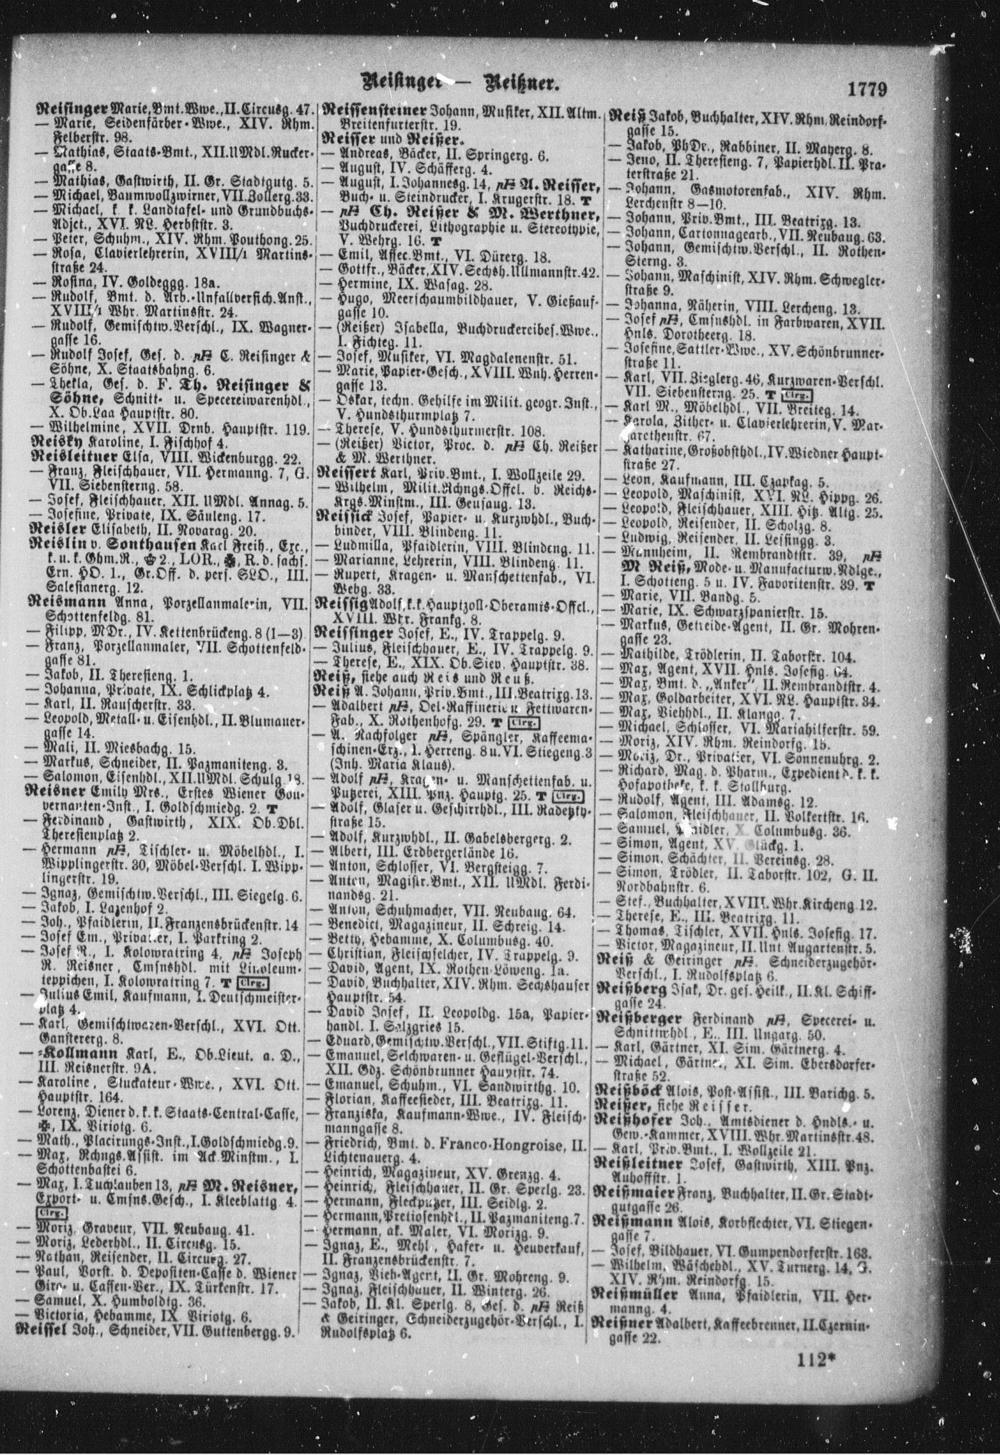 Reisinger — Reißner.
1779
Reisinger Marie, Bmt. Wwe., II. Circusg. 47.
— Marie, Seidenfärber-Wwe., XIV. Rhm.
Felberstr. 98.
— Mathias, Staats-Bmt., XII. UMdl. Rucker-
gasse 8.
— Mathias, Gastwirth, II. Gr. Stadtgutg. 5.
— Michael, Baumwollzwirner, VII. Zollerg. 33.
— Michael, k. k. Landtafel- und Grundbuchs-
Adjct., XVI. NL. Herbststr. 3.
— Peter, Schuhm., XIV. Rhm. Pouthong. 25.
— Rosa, Clavierlehrerin, XVIII/1 Martins-
straße 24.
— Rosina, IV. Goldeggg. 18a.
— Rudolf, Bmt. d. Arb.-Unfallversich. Anst.,
XVIII/1 Whr. Martinsstr. 24.
— Rudolf, Gemischtw. Verschl., IX. Wagner-
gasse 16.
— Rudolf Josef, Ges. d. pℎ C. Reisinger &
Söhne, X. Staatsbahng. 6.
— Thekla, Ges. d. F. Th. Reisinger &
Söhne, Schnitt- u. Specereiwarenhdl.,
X. Ob. Laa Hauptstr. 80.
— Wilhelmine, XVII. Drnb. Hauptstr. 119.
Reisky Karoline, I. Fischhof 4.
Reisleitner Elsa, VIII. Wickenburgg. 22.
— Franz, Fleischhauer, VII. Hermanng. 7, G.
VII. Siebensterng. 58.
— Josef, Fleischhauer, XII. UMdl. Annag. 5.
— Josefine, Private, IX. Säuleng. 17.
Reisler Elisabeth, II. Novarag. 20.
Reislin v. Sonthausen Karl Freih., Exc.,
k. u. k. Ghm. R., 2., LOR., R. d. sächs.
Ern. HO. 1., Gr. Off. d. pers. SLO., III.
Salesianerg. 12.
Reismann Anna, Porzellanmalerin, VII.
Schottenfeldg. 81.
— Filipp, MDr., IV. Kettenbrückeng. 8 (1—3)
— Franz, Porzellanmaler, VII. Schottenfeld-
gasse 81.
— Jakob, II. Theresieng. 1.
— Johanna, Private, IX. Schlickplatz 4.
— Karl, II. Rauscherstr. 33.
— Leopold, Metall- u. Eisenhdl., II. Blumauer-
gasse 14.
— Mali, II. Miesbachg. 15.
— Markus, Schneider, II. Pazmaniteng. 3.
— Salomon, Eisenhdl., XII. UMdl. Schulg. 18.
Reisner Emily Mrs., Erstes Wiener Gou-
vernanten-Inst., I. Goldschmiedg. 2. T
— Ferdinand, Gastwirth, XIX. Ob. Dbl.
Theresienplatz 2.
— Hermann pℎ, Tischler- u. Möbelhdl., I.
Wipplingerstr. 30, Möbel-Verschl. I. Wipp-
lingerstr. 19.
— Ignaz, Gemischtw. Verschl., III. Siegelg. 6.
— Jakob, I. Lazenhof 2.
— Joh., Pfaidlerin, II. Franzensbrückenstr. 14
— Josef Em., Privatier, I. Parkring 2.
— Josef R., I. Kolowratring 4, pℎ Joseph
R. Reisner, Cmsnshdl. mit Linoleum-
teppichen, I. Kolowratring 7. T Clrg.
— Julius Emil, Kaufmann, I. Deutschmeister-
platz 4.
— Karl, Gemischtwaren-Verschl., XVI. Ott.
Gansterrerg. 8.
— -Kollmann Karl, E., Ob. Lieut. a. D.,
III. Reisnerstr. 9A.
— Karoline, Stuckateur-Wwe., XVI. Ott.
Hauptstr. 164.
— Lorenz, Diener d. k. k. Staats-Central-Casse,
IX. Viriotg. 6.
— Math., Placirungs-Inst., I. Goldschmiedg. 9.
— Max, Rchngs. Assist. im Ack. Minstm., I.
Schottenbastei 6.
— Max, I. Tuchlauben 13, pℎ M. Reisner,
Export- u. Cmsns. Gesch., I. Kleeblattg. 4.
Clrg.
— Moriz, Graveur, VII. Neubaug. 41.
— Moriz, Lederhdl., II. Circusg. 15.
— Nathan, Reisender, II. Circusg. 27.
— Paul, Vorst. d. Depositen-Casse d. Wiener
Giro- u. Cassen-Ver., IX. Türkenstr. 17.
— Samuel, X. Humboldtg. 36.
— Victoria, Hebamme, IX. Viriotg. 6.
Reissel Joh., Schneider, VII. Guttenbergg. 9.
Reissensteiner Johann, Musiker, XII. Altm.
Breitenfurterstr. 19.
Reisser und Reißer.
— Andreas, Bäcker, II. Springerg. 6.
— August, IV. Schäfferg. 4.
— August, I. Johannesg. 14, pℎ A. Reisser,
Buch- u. Steindrucker, I. Krugerstr. 18. T
— pℎ Ch. Reißer & M. Werthner,
Buchdruckerei, Lithographie u. Stereotypie,
V. Wehrg. 16. T
— Emil, Assec. Bmt., VI. Dürerg. 18.
— Gottfr., Bäcker, XIV. Sechsh. Ullmannstr. 42.
— Hermine, IX. Wasag. 28.
— Hugo, Meerschaumbildhauer, V. Gießauf-
gasse 10.
— (Reißer) Isabella, Buchdruckereibes. Wwe.,
I. Fichteg. 11.
— Josef, Musiker, VI. Magdalenenstr. 51.
— Marie, Papier-Gesch., XVIII. Wnh. Herren-
gasse 13.
— Oskar, techn. Gehilfe im Milit. geogr. Inst.,
V. Hundsthurmplatz 7.
— Therese, V. Hundsthurmerstr. 108.
— (Reißer) Victor, Proc. d. pℎ Ch. Reißer
& M. Werthner.
Reissert Karl, Priv. Bmt., I. Wollzeile 29.
— Wilhelm, Milit. Rchngs. Offcl. b. Reichs-
Krgs. Minstm., III. Geusaug. 13.
Reissick Josef, Papier- u. Kurzwhdl., Buch-
binder, VIII. Blindeng. 11.
— Ludmilla, Pfaidlerin, VIII. Blindeng. 11.
— Marianne, Lehrerin, VIII. Blindeng. 11.
— Rupert, Kragen- u. Manschettenfab., VI.
Webg. 33.
Reissig Adolf, k. k. Hauptzoll-Oberamts-Offcl.,
XVIII. Whr. Frankg. 8.
Reissinger Josef, E., IV. Trappelg. 9.
— Julius, Fleischhauer, E., IV. Trappelg. 9.
— Therese, E., XIX. Ob. Siev. Hauptstr. 38.
Reiß, siehe auch Reis und Reuß.
Reiß A. Johann, Priv. Bmt., III. Beatrixg. 13.
— Adalbert pℎ, Oel-Raffinerie u. Fettwaren-
Fab., X. Rothenhofg. 29. T Clrg.
— A. Nachfolger pℎ, Spängler, Kaffeema-
schinen-Erz., I. Herreng. 8 u. VI. Stiegeng. 3
(Inh. Maria Klaus).
— Adolf pℎ, Kragen- u. Manschettenfab. u.
Putzerei, XIII. Pnz. Hauptg. 25. T Clrg.
— Adolf, Glaser u. Geschirrhdl., III. Radetzky-
straße 15.
— Adolf, Kurzwhdl., II. Gabelsbergerg. 2.
— Albert, III. Erdbergerlände 16.
— Anton, Schlosser, VI. Bergsteigg. 7.
— Anton, Magistr. Bmt., XII. UMdl. Ferdi-
nandsg. 21.
— Anton, Schuhmacher, VII. Neubaug. 64.
— Benedict, Magazineur, II. Schreig. 14.
— Betty, Hebamme, X. Columbusg. 40.
— Christian, Fleischselcher, IV. Trappelg. 9.
— David, Agent, IX. Rothen Löweng. 1a.
— David, Buchhalter, XIV. Rhm. Sechshauser
Hauptstr. 54.
— David Josef, II. Leopoldg. 15a, Papier-
handl. I. Salzgries 15.
— Eduard, Gemischtw. Verschl., VII. Stiftg. 11.
— Emanuel, Selchwaren- u. Geflügel-Verschl.,
XII. Gdz. Schönbrunner Hauptstr. 74.
— Emanuel, Schuhm., VI. Sandwirthg. 10.
— Florian, Kaffeesieder, III. Beatrixg. 11.
— Franziska, Kaufmann-Wwe., IV. Fleisch-
manngasse 8.
— Friedrich, Bmt. d. Franco-Hongroise, II.
Lichtenauerg. 4.
— Heinrich, Magazineur, XV. Grenzg. 4.
— Heinrich, Fleischhauer, II. Gr. Sperlg. 23.
— Hermann, Fleckputzer, III. Seidlg. 2.
— Hermann, Pretiosenhdl., II. Pazmaniteng. 7.
— Hermann, ak. Maler, VI. Morizg. 9.
— Ignaz, E., Mehl-, Hafer- u. Heuverkauf,
II. Franzensbrückenstr. 7.
— Ignaz, Vieh-Agent, II. Gr. Mohreng. 9.
— Ignaz, Fleischhauer, II. Winterg. 26.
— Jakob, II. Kl. Sperlg. 8, Ges. d. pℎ Reiß
& Geiringer, Schneiderzugehör-Verschl., I.
Rudolfsplatz 6.
Reiß Jakob, Buchhalter, XIV. Rhm. Reindorf-
gasse 15.
— Jakob, PhDr., Rabbiner, II. Mayerg. 8.
— Jeno, II. Theresieng. 7, Papierhdl. II. Pra-
terstraße 21.
— Johann, Gasmotorenfab., XIV. Rhm.
Lerchenstr. 8—10.
— Johann, Priv. Bmt., III. Beatrixg. 13.
— Johann, Cartonnagearb., VII. Neubaug. 63.
— Johann, Gemischtw. Verschl., II. Rothen-
Sterng. 3.
— Johann, Maschinist, XIV. Rhm. Schwegler-
straße 9.
— Johanna, Näherin, VIII. Lercheng. 13.
— Josef pℎ, Cmsnshdl. in Farbwaren, XVII.
Hnls. Dorotheerg. 18.
— Josefine, Sattler-Wwe., XV. Schönbrunner-
straße 11.
— Karl, VII. Zieglerg. 46, Kurzwaren-Verschl.
VII. Siebensterng. 25. T Clrg.
— Karl M., Möbelhdl., VII. Breiteg. 14.
— Karola, Zither- u. Clavierlehrerin, V. Mar-
garethenstr. 67.
— Katharine, Großobsthdl., IV. Wiedner Haupt-
straße 27.
— Leon, Kaufmann, III. Czapkag. 5.
— Leopold, Maschinist, XVI. NL. Hippg. 26.
— Leopold, Fleischhauer, XIII. Hitz. Altg. 25.
— Leopold, Reisender, II. Scholzg. 8.
— Ludwig, Reisender, II. Lessingg. 3.
— Mannheim, II. Rembrandtstr. 39, pℎ
M Reiß, Mode- u. Manufacturw. Ndlge.,
I. Schotteng. 5 u. IV. Favoritenstr. 39. T
— Marie, VII. Bandg. 5.
— Marie, IX. Schwarzspanierstr. 15.
— Markus, Getreide-Agent, II. Gr. Mohren-
gasse 23.
— Mathilde, Trödlerin, II. Taborstr. 104.
— Max, Agent, XVII. Hnls. Josefig. 64.
— Max, Bmt. d. „Anker“ II. Rembrandtstr. 4.
— Max, Goldarbeiter, XVI. NL. Hauptstr. 34.
— Max, Viehhdl., II. Klangg. 7.
— Michael, Schlosser, VI. Mariahilferstr. 59.
— Moriz, XIV. Rhm. Reindorfg. 15.
— Moriz, Dr., Privatier, VI. Sonnenuhrg. 2.
— Richard, Mag. d. Pharm., Expedient d. k. k.
Hofapotheke, k. k. Stallburg.
— Rudolf, Agent, III. Adamsg. 12.
— Salomon, Fleischhauer, II. Volkertstr. 16.
— Samuel, Pfaidler, X. Columbusg. 36.
— Simon, Agent, XV. Glückg. 1.
— Simon, Schächter, II. Vereinsg. 28.
— Simon, Trödler, II. Taborstr. 102, G. II.
Nordbahnstr. 6.
— Stef., Buchhalter, XVIII. Whr. Kircheng. 12.
— Therese, E., III. Beatrixg. 11.
— Thomas, Tischler, XVII. Hnls. Josefig. 17.
— Victor, Magazineur, II. Unt. Augartenstr. 5.
Reiß & Geiringer pℎ, Schneiderzugehör-
Verschl., I. Rudolfsplatz 6.
Reißberg Isak, Dr. ges. Heilk., II. Kl. Schiff-
gasse 24.
Reißberger Ferdinand pℎ, Specerei- u.
Schnittwhdl., E., III. Ungarg. 50.
— Karl, Gärtner, XI. Sim. Gärtnerg. 4.
— Michael, Gärtner, XI. Sim. Ebersdorfer-
straße 52.
Reißböck Alois, Post-Assist., III. Barichg. 5.
Reißer, siehe Reisser.
Reißhofer Joh., Amtsdiener d. Hndls.- u.
Gew.-Kammer, XVIII. Whr. Martinsstr. 48.
— Karl, Priv. Bmt., I. Wollzeile 21.
Reißleitner Josef, Gastwirth, XIII. Pnz.
Auhofstr. 1.
Reißmaier Franz, Buchhalter, II. Gr. Stadt-
gutgasse 26.
Reißmann Alois, Korbflechter, VI. Stiegen-
gasse 7.
— Josef, Bildhauer, VI. Gumpendorferstr. 163.
— Wilhelm, Wäschehdl., XV. Turnerg. 14, G.
XIV. Rhm. Reindorfg. 15.
Reißmüller Anna, Pfaidlerin, VII. Her-
manng. 4.
Reißner Adalbert, Kaffeebrenner, II. Czernin-
gasse 22.
112*